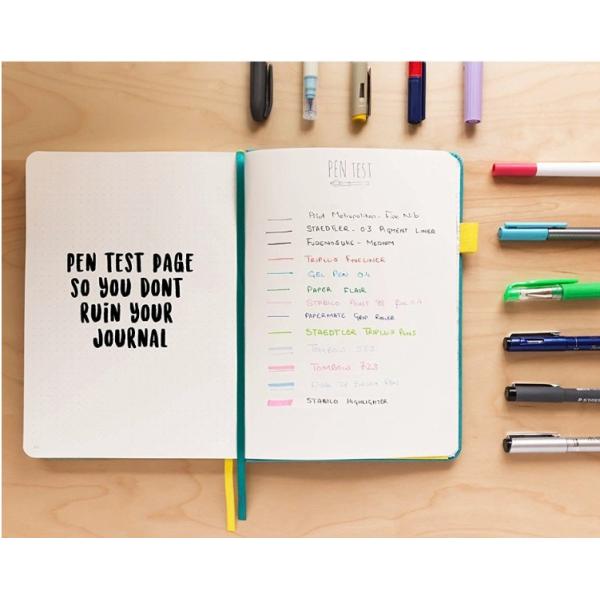 PEN TEST PAGE
SO YOU DONT
RUIN YOUR
JOURNAL
PEN TEST
Pilot Metropolitan - Fine Nib
STAEDTLER - 0.3 PIGMENT LINER
FUDENOSUKE - MEDIUM
TRIPLUS FINELINER
GEL PEN 0.4
PAPER FLAIR
STABILO POINT 88
PAPERMATE GRIP ROLLER
STAEDTLER TRIPLUS PENS
TOMBOW
TOMBOW 723
BRUSH PEN
STABILO HIGHLIGHTER